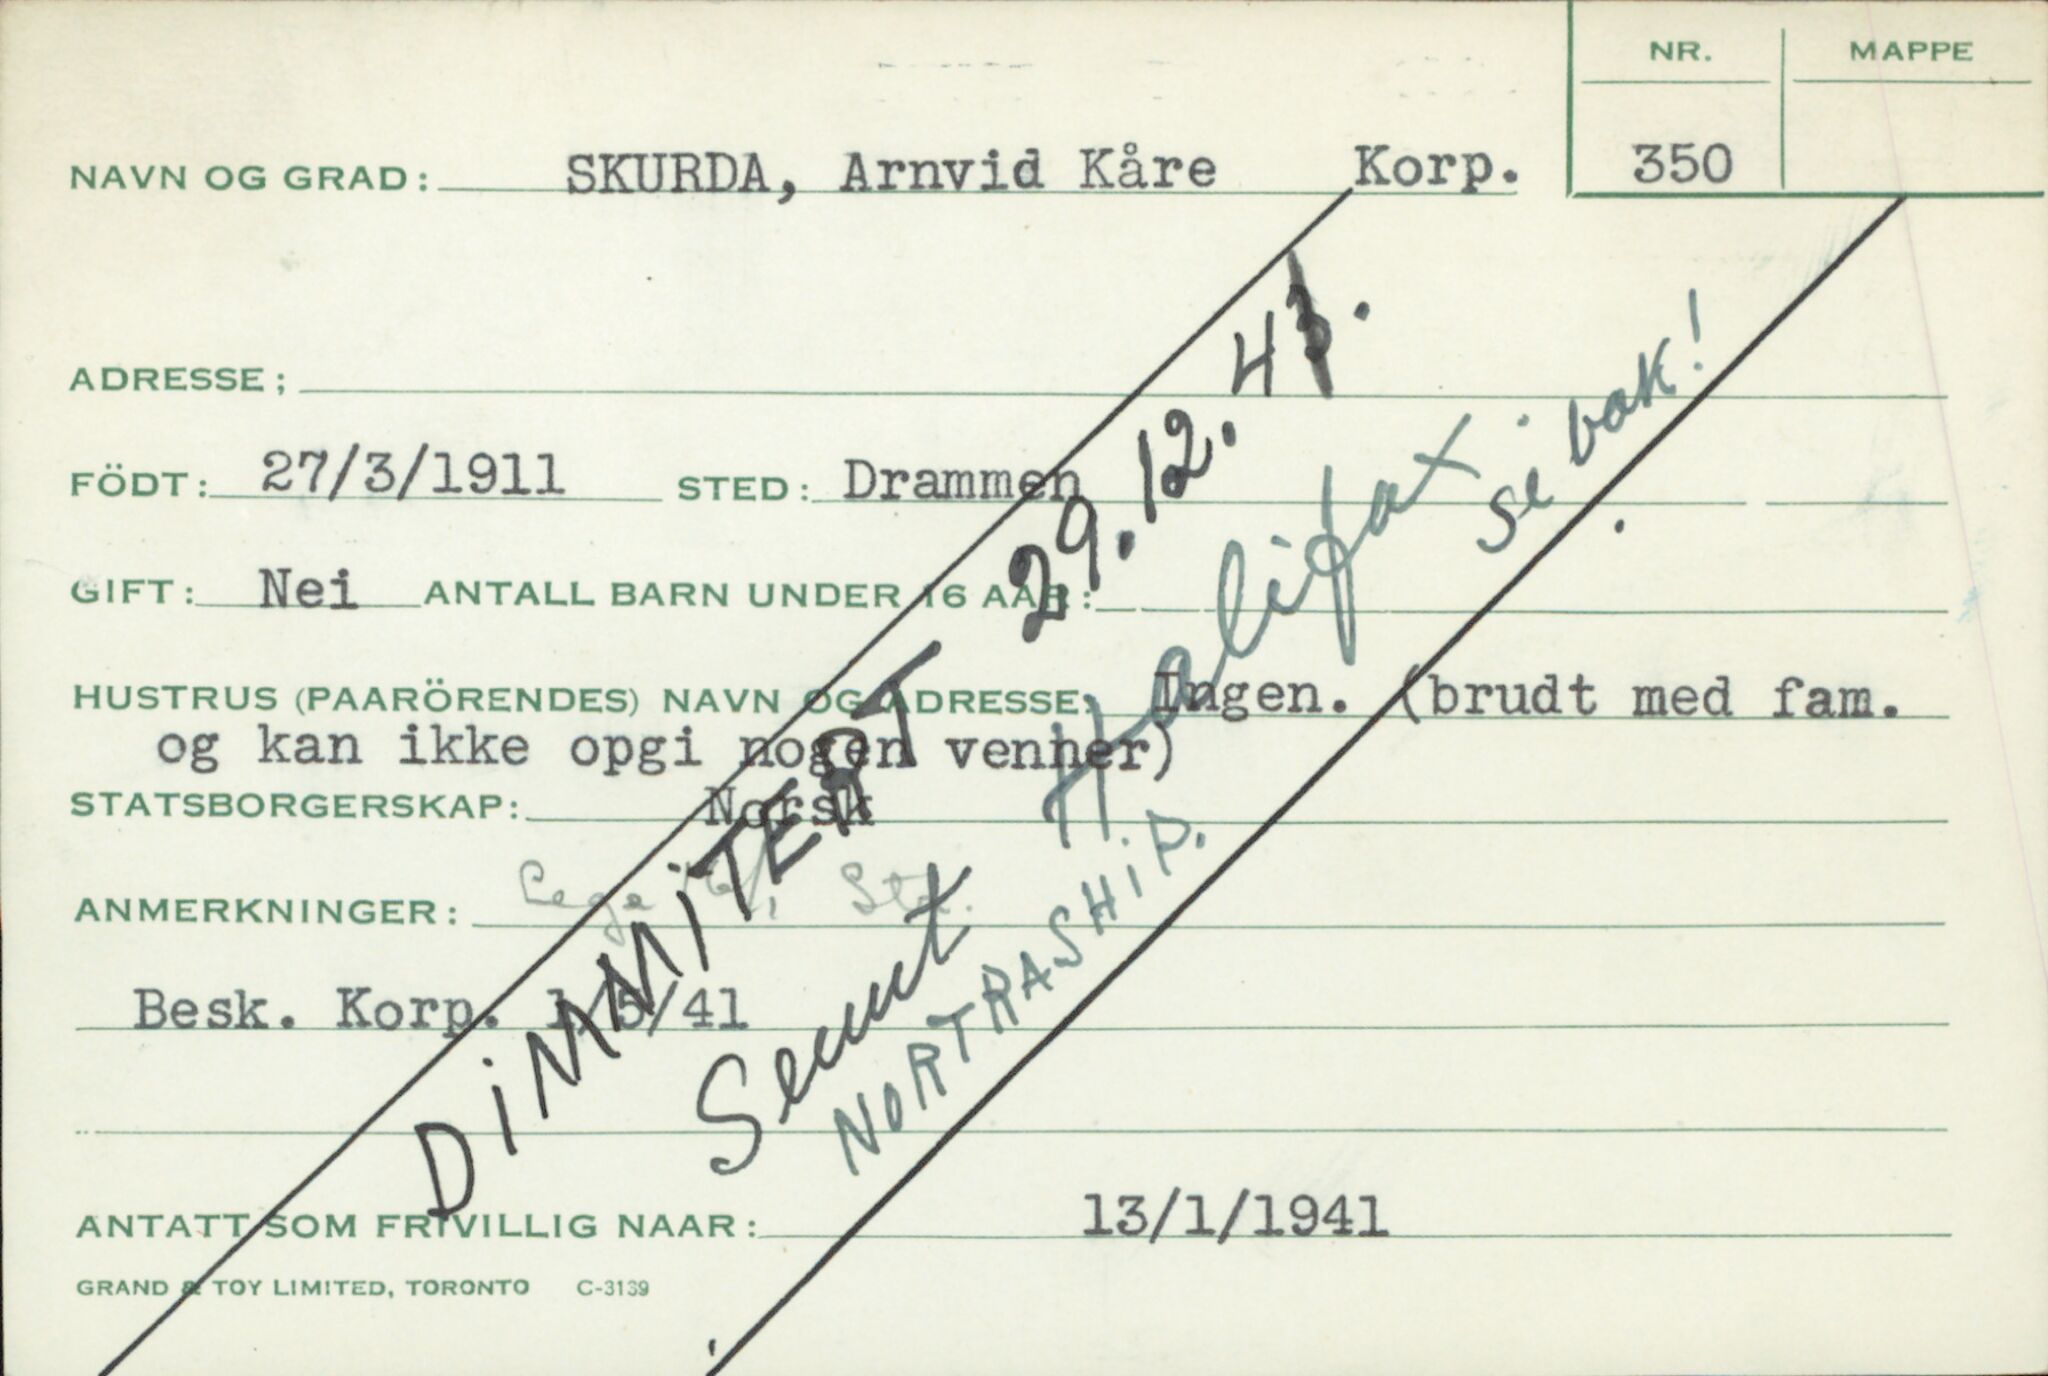 NR. MAPPE
NAVN OG GRAD: SKURDA, Arnvid Kåre Korp. 350
ADRESSE;
FÖDT: 27/3/1911 STED: Drammen
GIFT: Nei ANTALL BARN UNDER 16 AAR:
HUSTRUS (PAARÖRENDES) NAVN OG ADRESSE: Ingen. (brudt med fam.
og kan ikke opgi nogen venner)
STATSBORGERSKAP: Norsk
ANMERKNINGER: Lege
Besk. Korp. 1/5/41
ANTATT SOM FRIVILLIG NAAR: 13/1/1941
GRAND & TOY LIMITED, TORONTO C-3139
DiMMiTERT 29.12.41.
Sendt Halifax. Se bak!
NORTRASHiP.